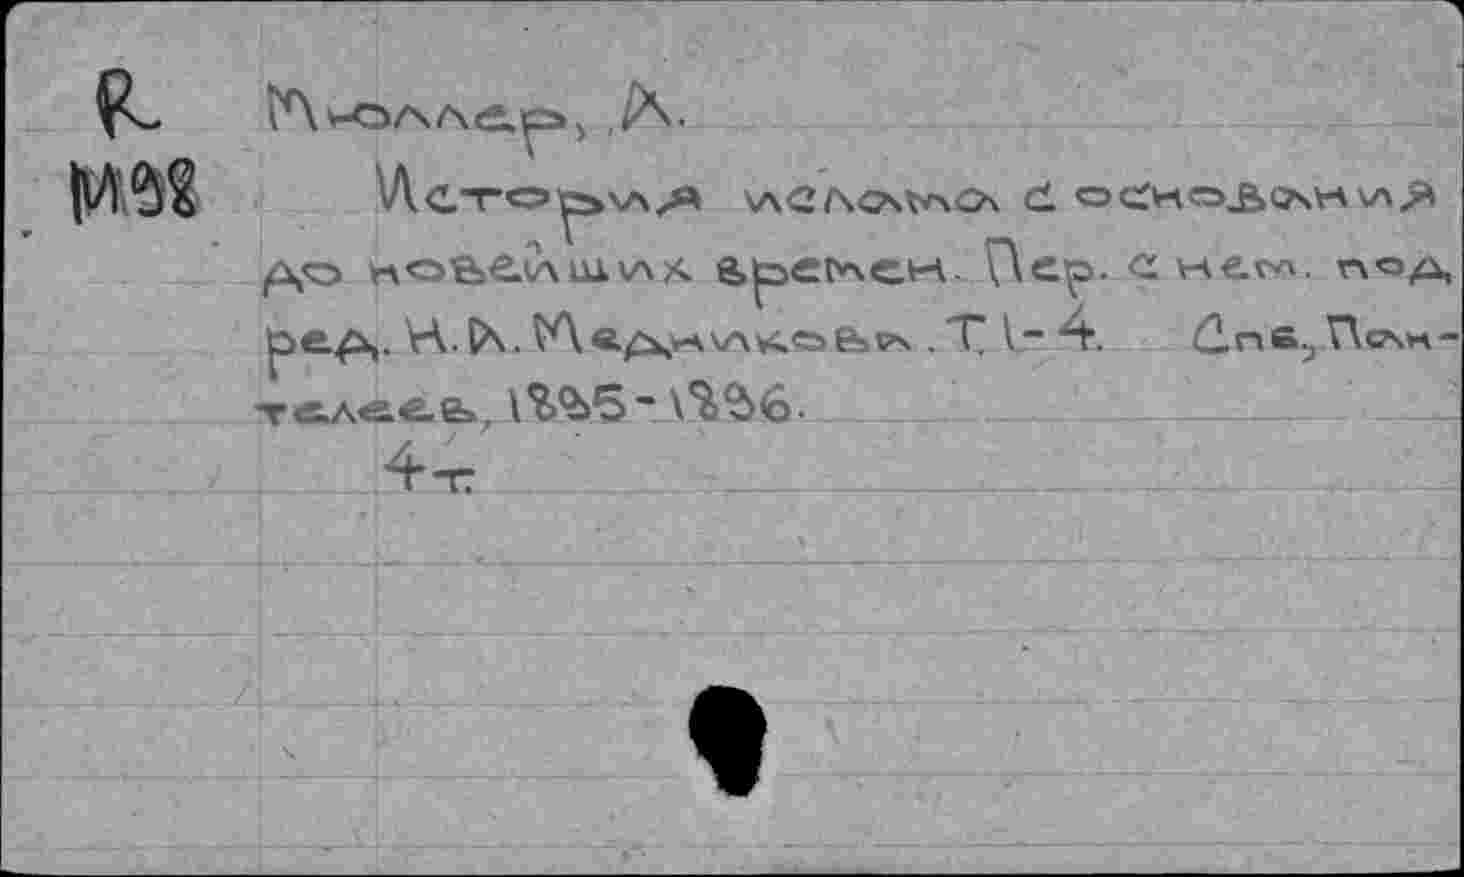 R Мюллер, А.
М98 История ислама с основания
до новейших времен. Пер. с нем. под
ред. Н.А. Медникова. Т. 1-4. Спб., Пан-
телеев, 1895-1896.
4 т.